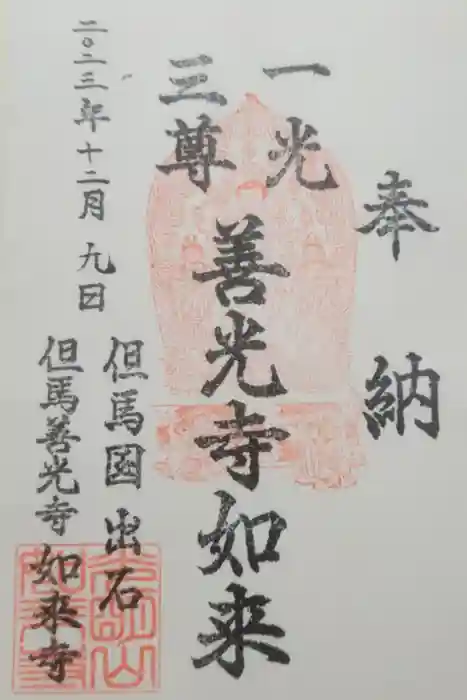 奉納
一光
三尊
善光寺如来
但馬国出石
但馬善光寺如来寺
二〇二三年十二月九日